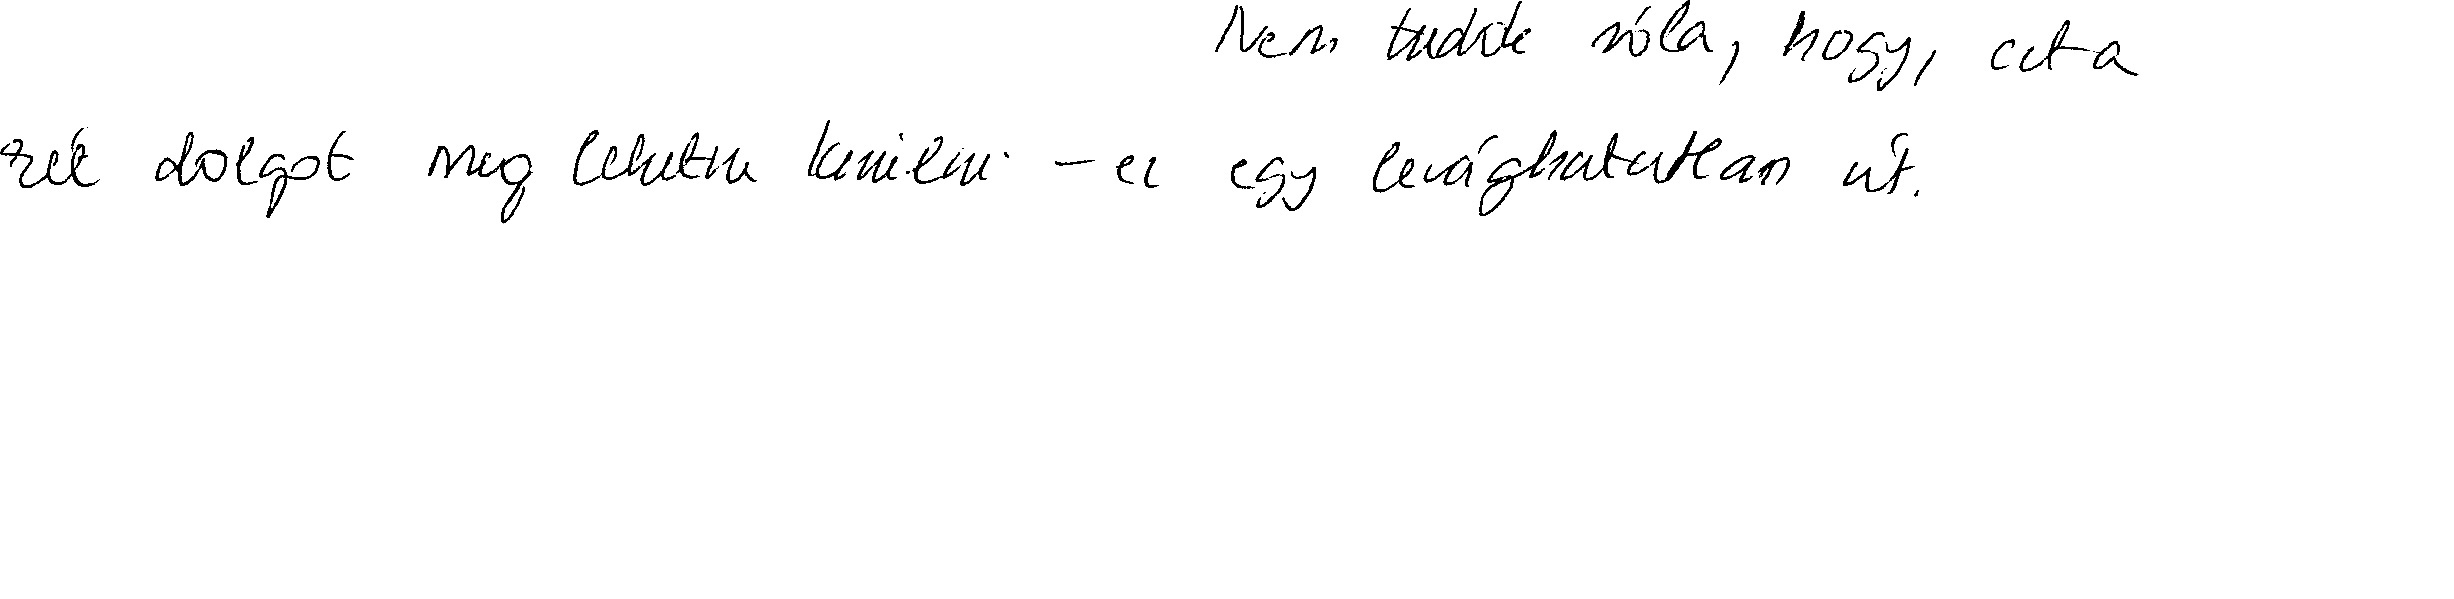 Nem tudok róla, hogy, ezt a
dolgot meg lehetne kerülni - ez egy levághatatlan út.